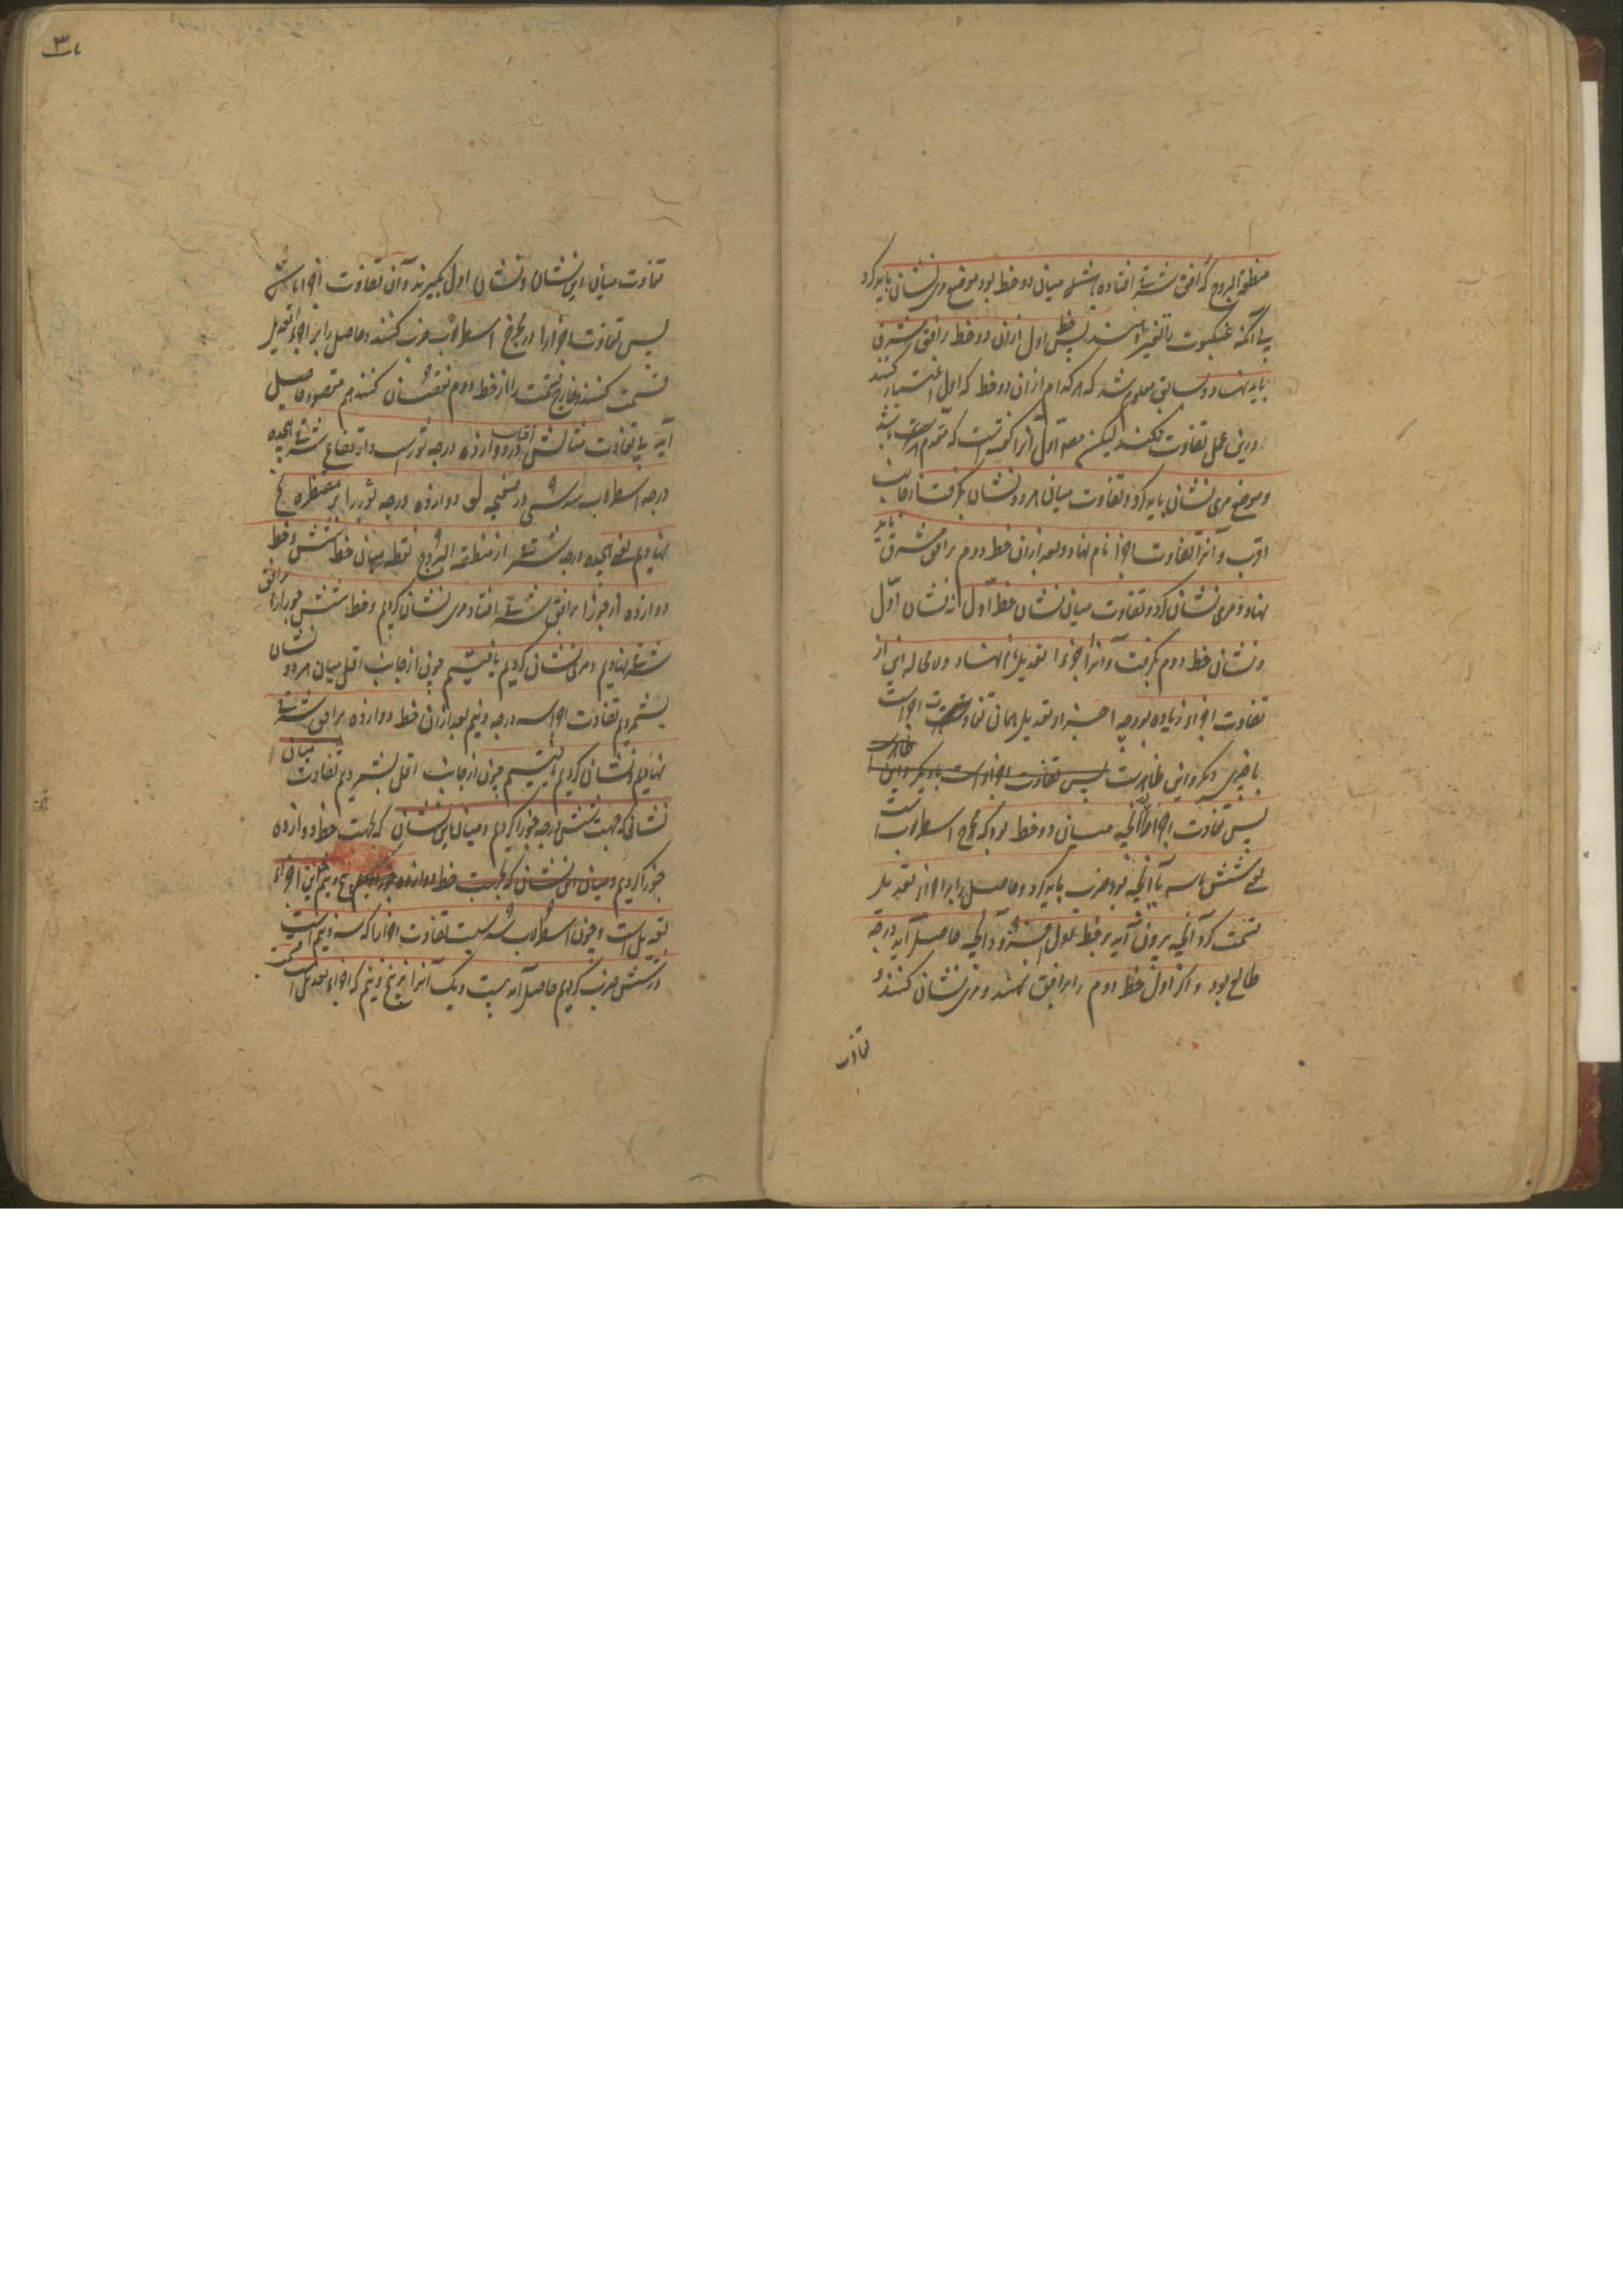 منطقة البروج که افق شرقی افتاده باشد میان دو خط بود موضع مری نشان باید کرد
بی آنکه عنکبوت را تغییر دهند پس خط اول ازان دو خط بر افق مشرق
باید نهاد و سابق معلوم شد که هر کدام ازان دو خط که اول اعتبار کنند
درین عمل تفاوت نکند لیکن مصنف اول آنرا گفته است که مقدم است باشد
و موضع مری نشان باید کرد و تفاوت میان هر دو نشان بگرفت از جانب
اقرب و آنرا تفاوت اجزا نام نهاد و بعد ازان خط دوم بر افق مشرق باید
نهاد و مری نشان کرد و تفاوت میان نشان خط اول نه نشان اول
و نشان خط دوم بگرفت و آنرا اجزاء تعدیل نام نهاد و لا محاله این از
تفاوت اجزا زیاده بود چه اجزاء تعدیل همان تفاوت اجزا است
با چیزی دیگر و این ظاهرست پس تفاوت اجزا است با دیگر و این ظاهرست
پس تفاوت اجزا را در آنچه میان دو خط بود که مخرج اسطرلاب است
یعنی شش یا سه یا آنچه بود ضرب باید کرد و حاصل را بر اجزاء تعدیل
قسمت کرد آنچه بیرون آید بر خط اول افزود آنچه حاصل آید درجه
طالع بود و اگر اول خط دوم را بر افق نهند و مری نشان کنند
تفاوت
۳
تفاوت میان این نشان و نشان اول بگیرند و آن تفاوت اجزا باشد
پس تفاوت اجزا را در مخرج اسطرلاب ضرب کنند و حاصل را بر اجزاء تعدیل
قسمت کنند و خارج قسمت را از خط دوم نقصان کنند هم مقصود حاصل
آید بی تفاوت مثالش آفتاب در دوازده درجه ثور است و ارتفاع شرقی هجده
درجه اسطرلاب سدسی در صفیحه لو دوازده درجه ثور را بر مقنطره یح
نهادیم یعنی هجده درجه شرقی از منطقة البروج نقطه میان خط شش و خط
دوازده از جوزا بر افق شرقی افتاد مری نشان کردیم و خط شش جوزا را بر افق
شرقی نهادیم و مری نشان کردیم یافتیم چون از جانب اقل میان هر دو نشان
بشمردیم تفاوت اجزا سه درجه و نیم بعد ازان خط دوازده بر افق شرقی
نهادیم و نشان کردیم یافتیم چون از جانب اقل بشمردیم تفاوت میان
نشانی که جهت شش درجه جوزا کردیم و میان این نشان که بجهت خط دوازده
جوزا کردیم و میان این نشان که بجهت خط دوازده جوزا کردیم پنج و نیم این اجزاء
تعدیل است و چون اسطرلاب سدسی است تفاوت اجزا را که سه و نیم است
در شش ضرب کردیم حاصل آمد بیست و یک آنرا بر پنج و نیم که اجزاء تعدیل است